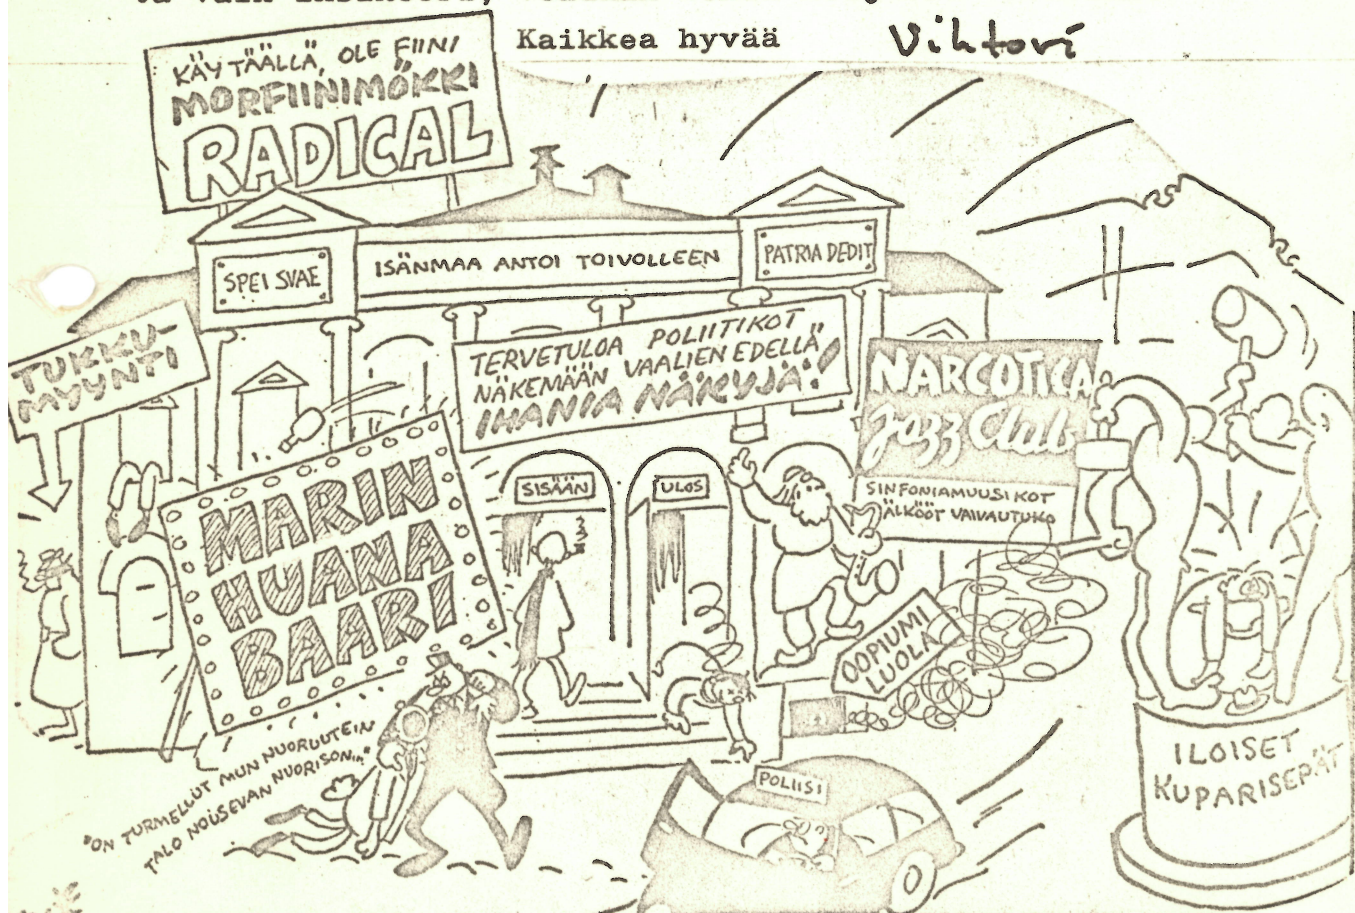 Kaikkea hyvää
Vihtori
KÄY TÄÄLLÄ, OLE FIINI
MORFIINIMÖKKI
RADICAL
SPEI SVAE
ISÄNMAA ANTOI TOIVOLLEEN
PATRIA DEDIT
TUKKU-
MYYNTI
TERVETULOA POLIITIKOT
NÄKEMÄÄN VAALIEN EDELLÄ
IHANIA NÄKYJÄ!
NARCOTICA
Jazz Club
SINFONIAMUUSIKOT
ÄLKÖÖT VAIVAUTUKO
MARIN
HUANA
BAARI
SISÄÄN
ULOS
OOPIUMI
LUOLA
"ON TURMELLUT MUN NUORUUTEIN
TALO NOUSEVAN NUORISON..."
POLIISI
ILOISET
KUPARISEPÄT